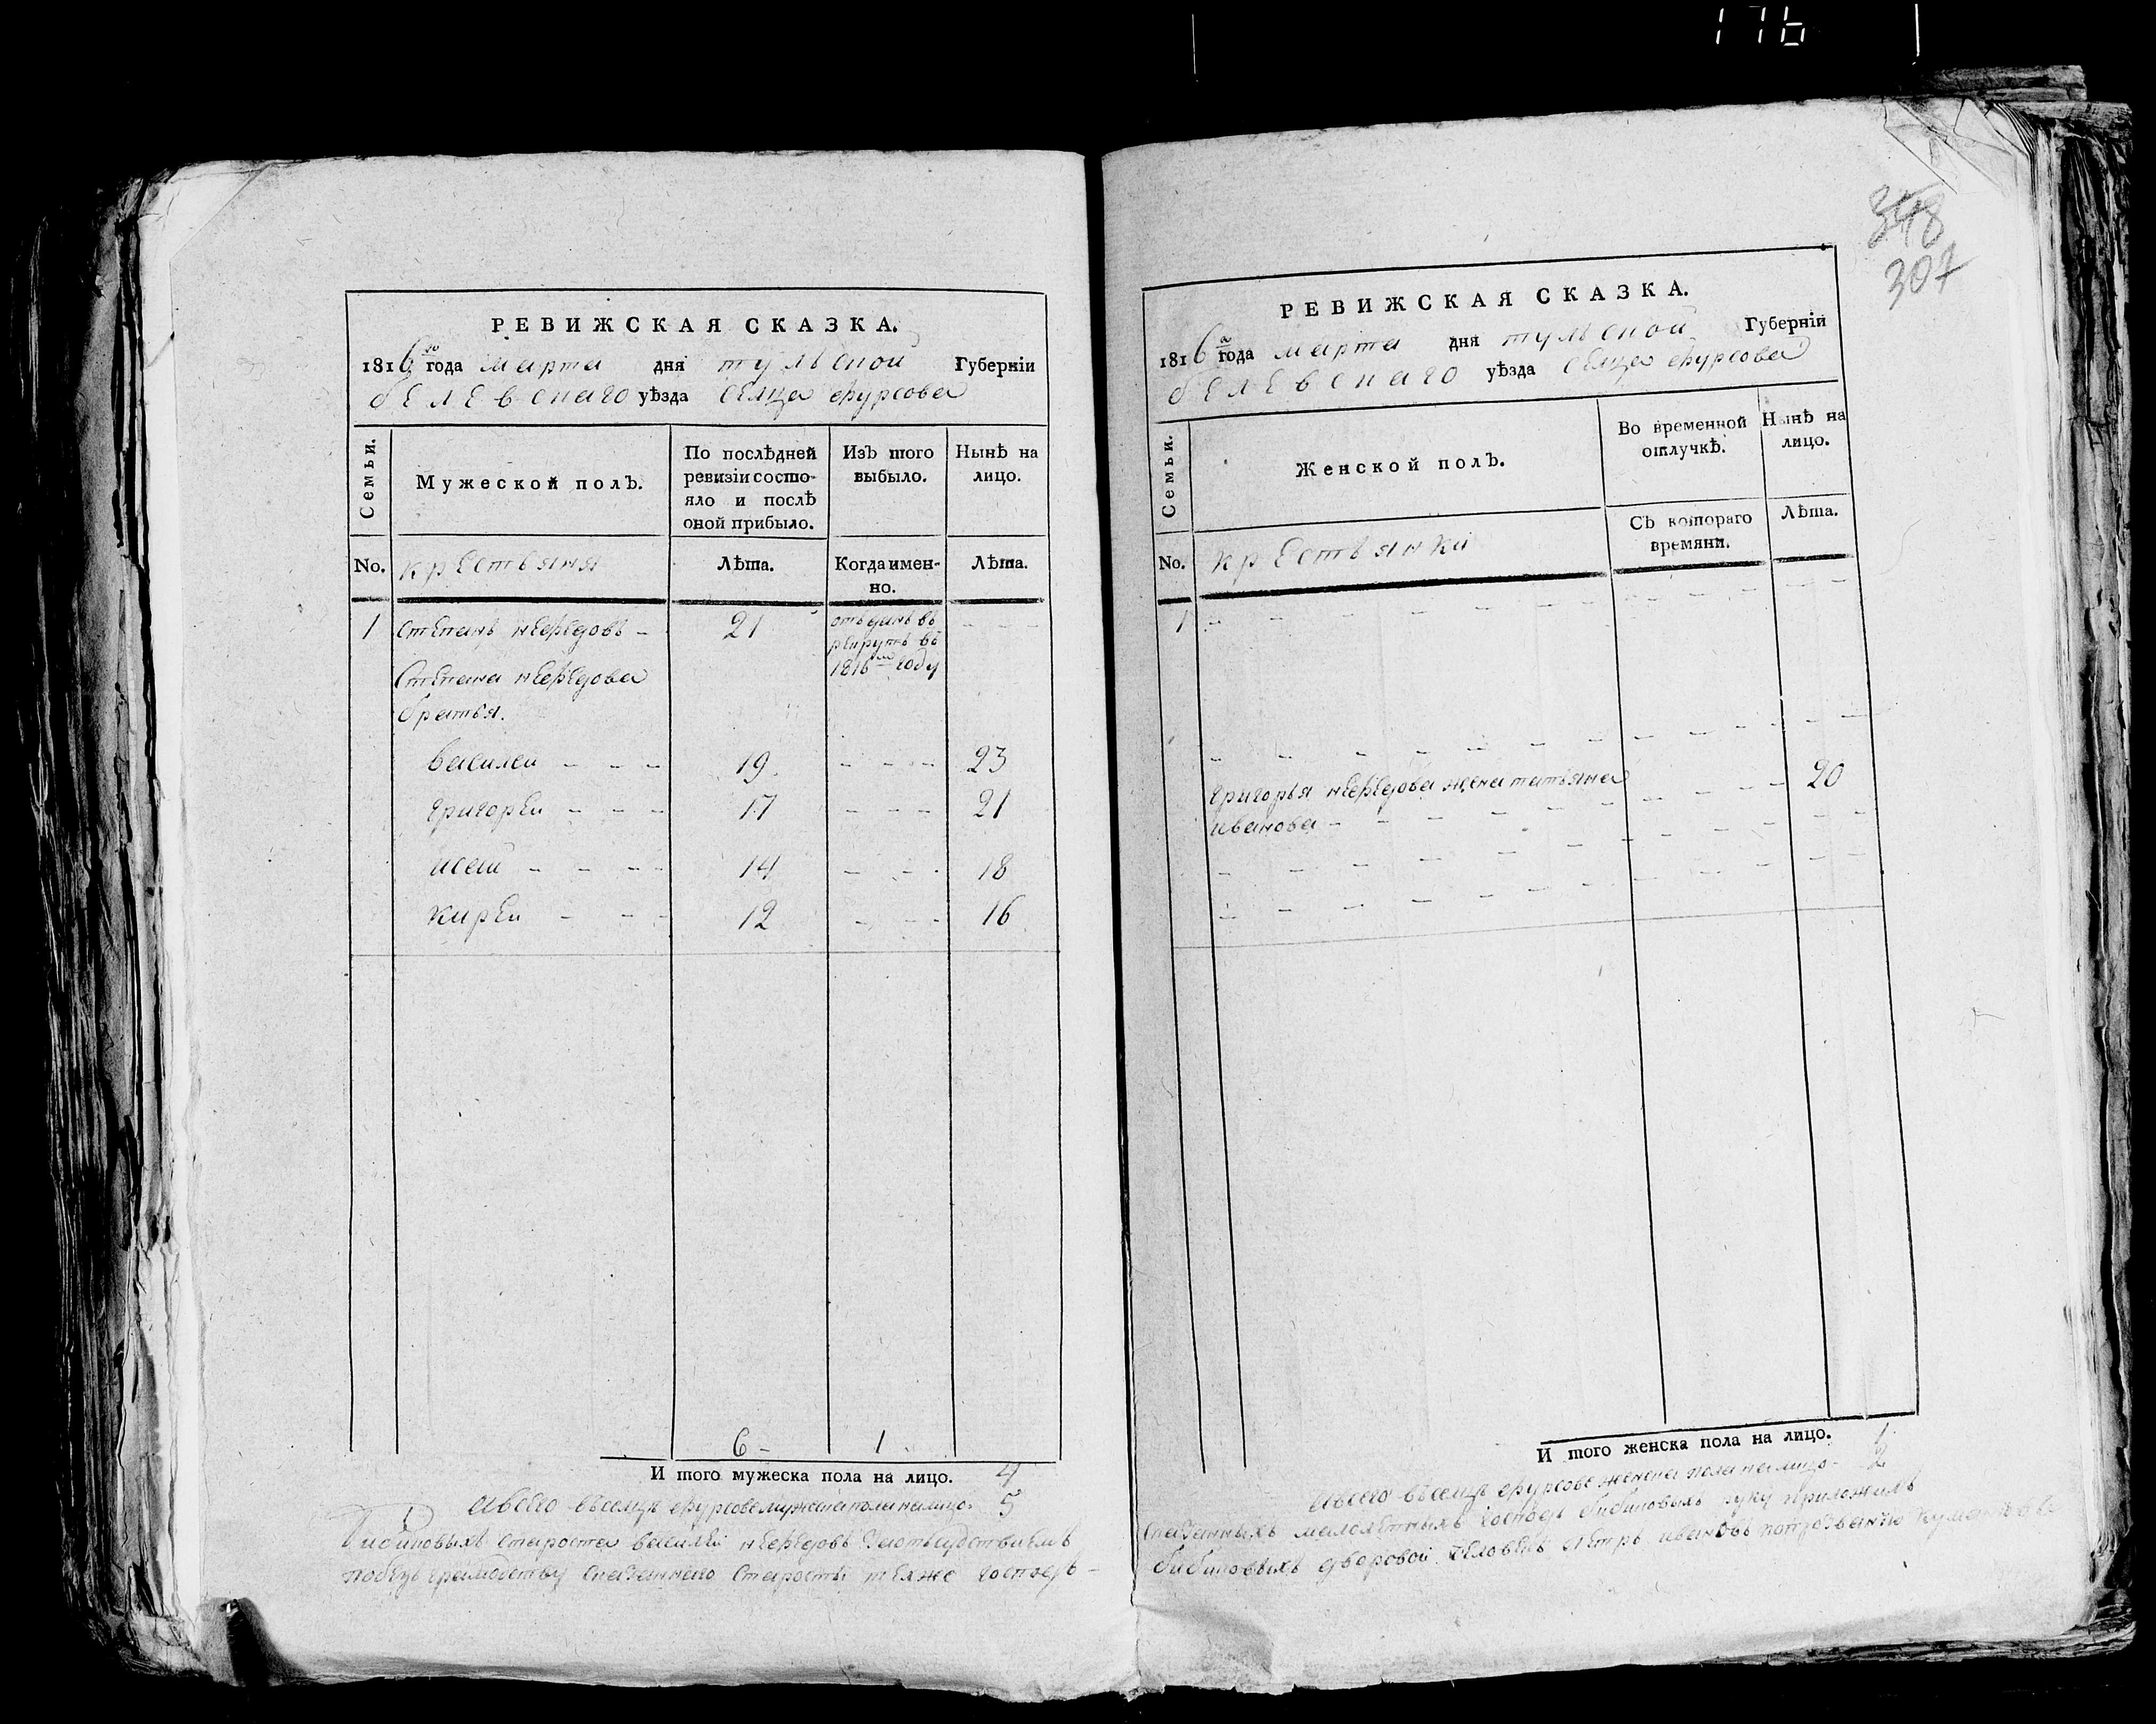 176
348
307
РЕВИЖСКАЯ СКАЗКА.
1816го года марта дня тульской Губерніи
белевскаго уѣзда селца фурсова
Семьи.
Мужеской полЪ.
По послѣдней ревизіи состояло и послѣ оной прибыло.
ИзЪ того выбыло.
Нынѣ на лицо.
No.
крестьяня
Лѣта.
Когда именно.
Лѣта.
1 Степанъ нефедовъ 21 отъданъ въ
рекруты въ
1816м году
Степана нефедова
братья.
василей 19 23
григореи 17 21
исай 14 18
киреи 12 16
6 1
И того мужеска пола на лицо. 4
авсего въселце фурсове мужеска пола налицо 5
бибиковыхъ староста василей нефедовъ
побезъ грамотству старосты техже господъ
РЕВИЖСКАЯ СКАЗКА.
1816го года марта дня тульской Губерніи
белевскаго уѣзда селца фурсова
Семьи.
Женской полЪ.
Во временной отлучкѣ.
Нынѣ на лицо.
СЪ котораго времяни.
Лѣта.
No.
крестьянки
1
григорья нефедова жена татьяна 20
иванова
И того женска пола на лицо. 1
авсего въселце фурсове женска пола налицо 2
малолетныхъ господъ бибиковыхъ руку приложилъ
бибиковыхъ дворовой человекъ петръ ивановъ